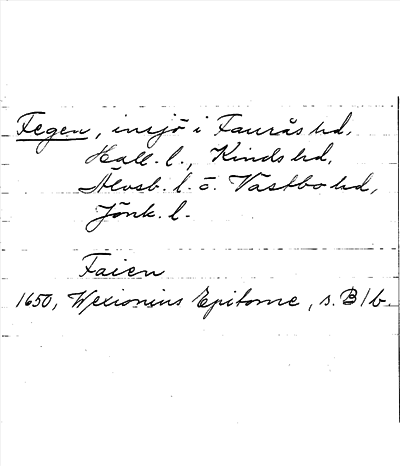 Fegen, insjö i Faurås hd,
Hall. l., Kinds hd,
Älvsb. l. o. Västbo hd,
Jönk. l.
Faien
1650, Wexionius Epitome, s. B1b.